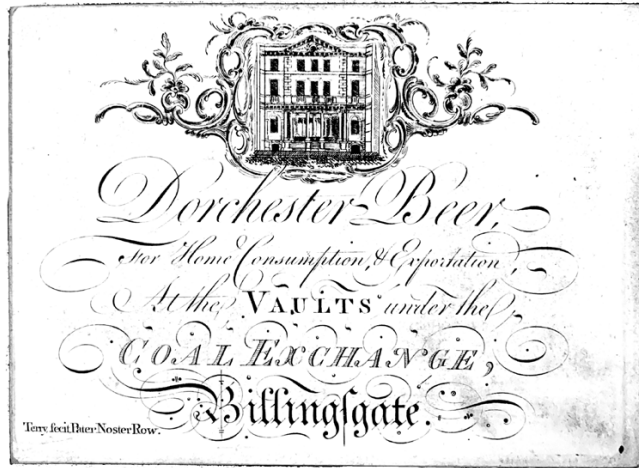 Dorchester Beer,
For Home Consumption, & Exportation,
At the VAULTS under the
COAL EXCHANGE,
Billingſgate.
Terry fecit Pater Noster Row.